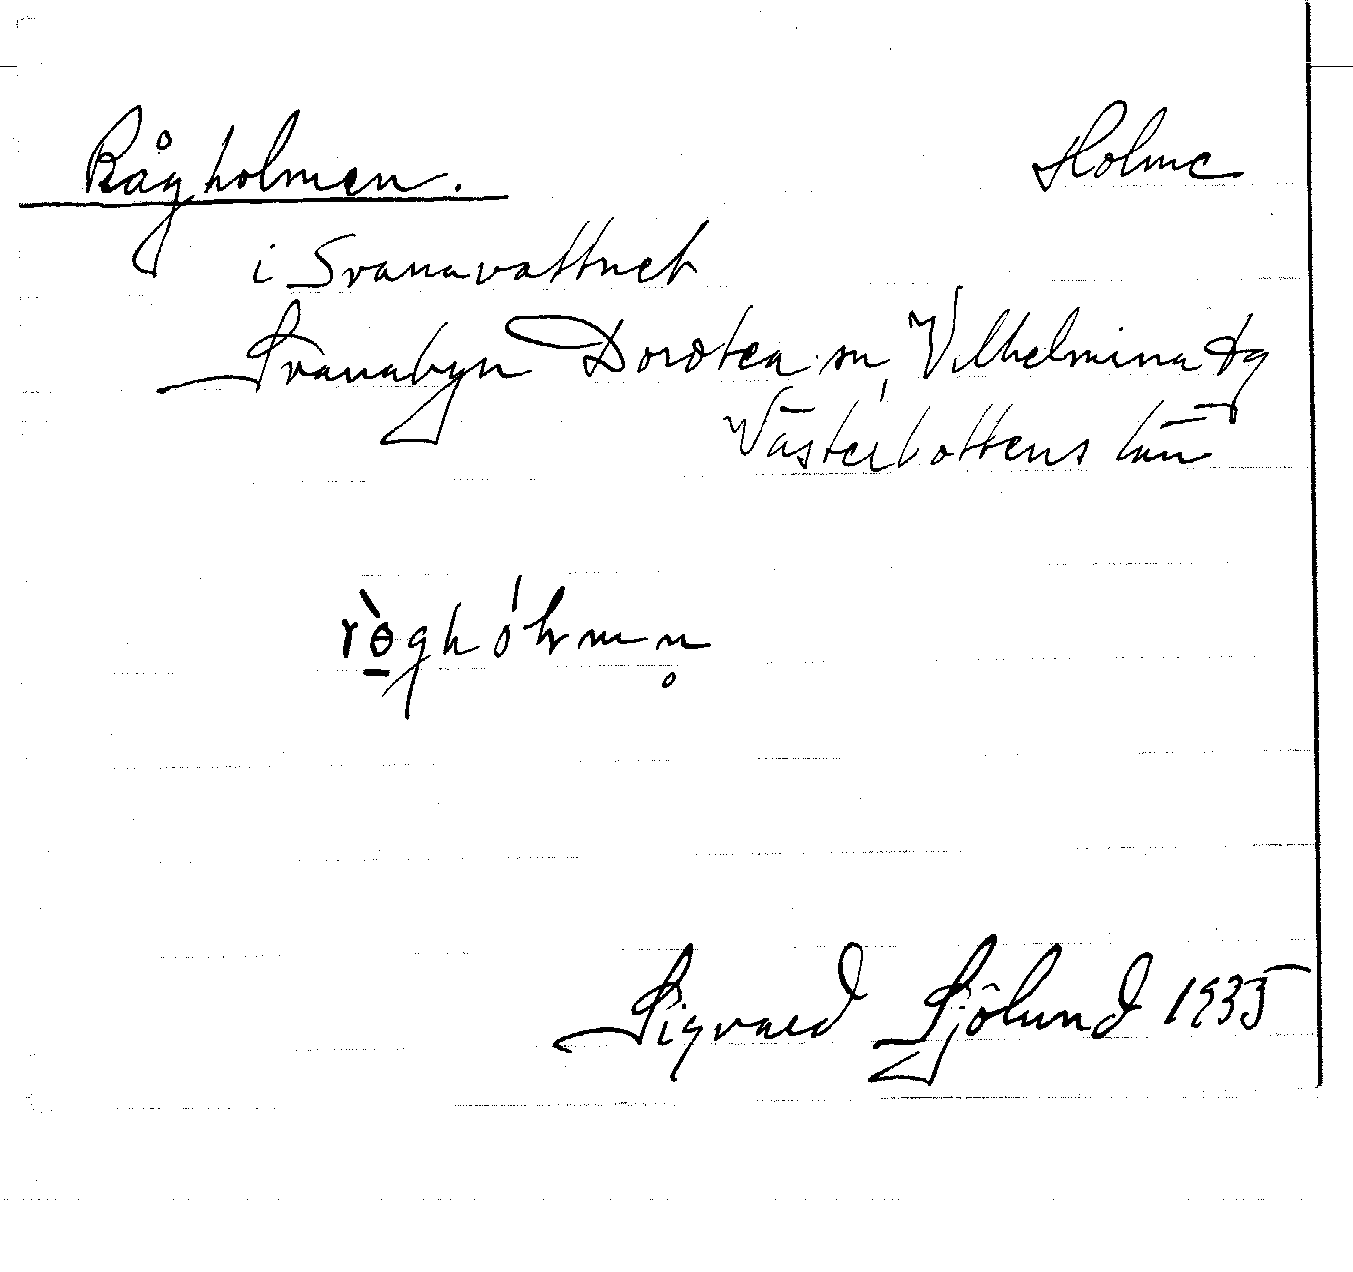 Rågholmen. Holme
i Svanavattnet
Svanabyn Dorotea sn, Vilhelmina tg
Västerbottens län
ròghólmn̥
Sigvard Sjölund 1935